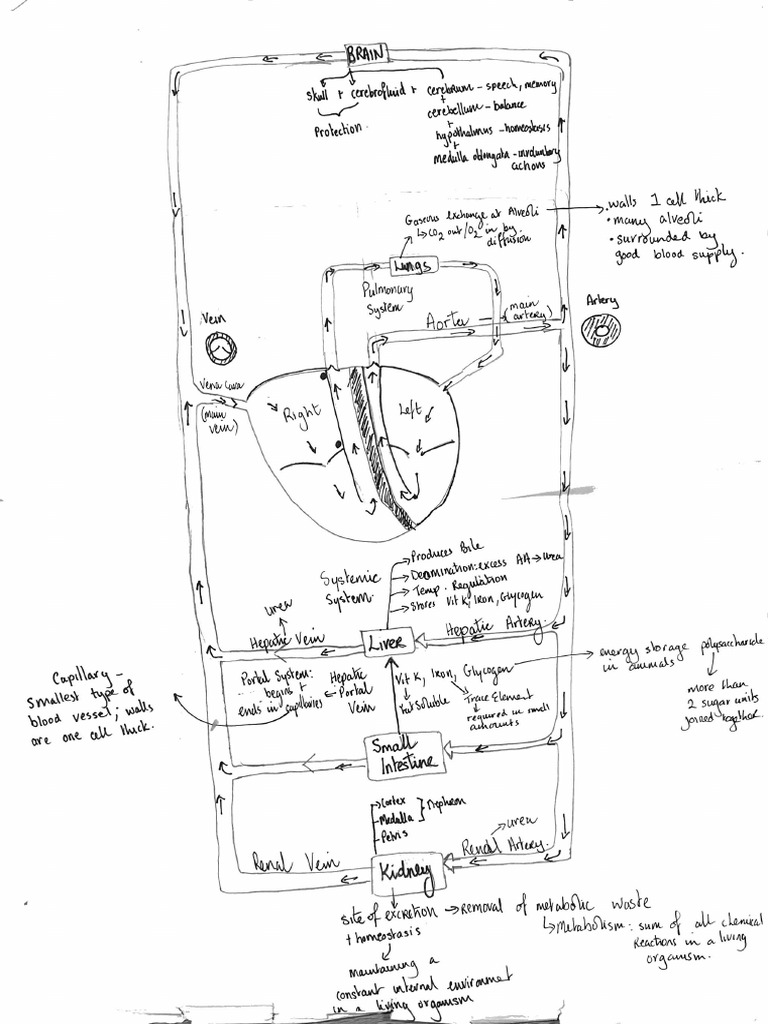 BRAIN
skull + cerebrofluid + cerebrum - speech, memory
+
cerebellum - balance
+
hypothalmus - homeostasis
+
medulla oblongata - involuntary
actions
Protection
Gaseous exchange at Alveoli
↳CO2 out/O2 in by
diffusion
• walls 1 cell thick
• many alveoli
• surrounded by
good blood supply.
Lungs
Pulmonary
System
Aorta → (main
artery)
Artery
Vein
Vena Cava
(main
vein)
Right
Left
Systemic
System
Produces Bile
Deamination: excess AA → urea
Temp. Regulation
Stores Vit K, Iron, Glycogen
urea
Hepatic Vein
LIVER
Hepatic Artery
energy storage polysaccharide
in animals
more than
2 sugar units
joined together.
Capillary -
Smallest type of
blood vessel; walls
are one cell thick.
Portal System:
begins +
ends in capillaries
Hepatic
Portal
Vein
Vit K, Iron, Glycogen
Fat Soluble
Trace Element
required in small
amounts
Small
Intestine
Cortex
Medulla
Pelvis
Nephron
urea
Renal Vein
Renal Artery.
Kidney
site of excretion → removal of metabolic waste
+ homeostasis
↳Metabolism: sum of all chemical
Reactions in a living
organism.
maintaining a
constant internal environment
in a living organism